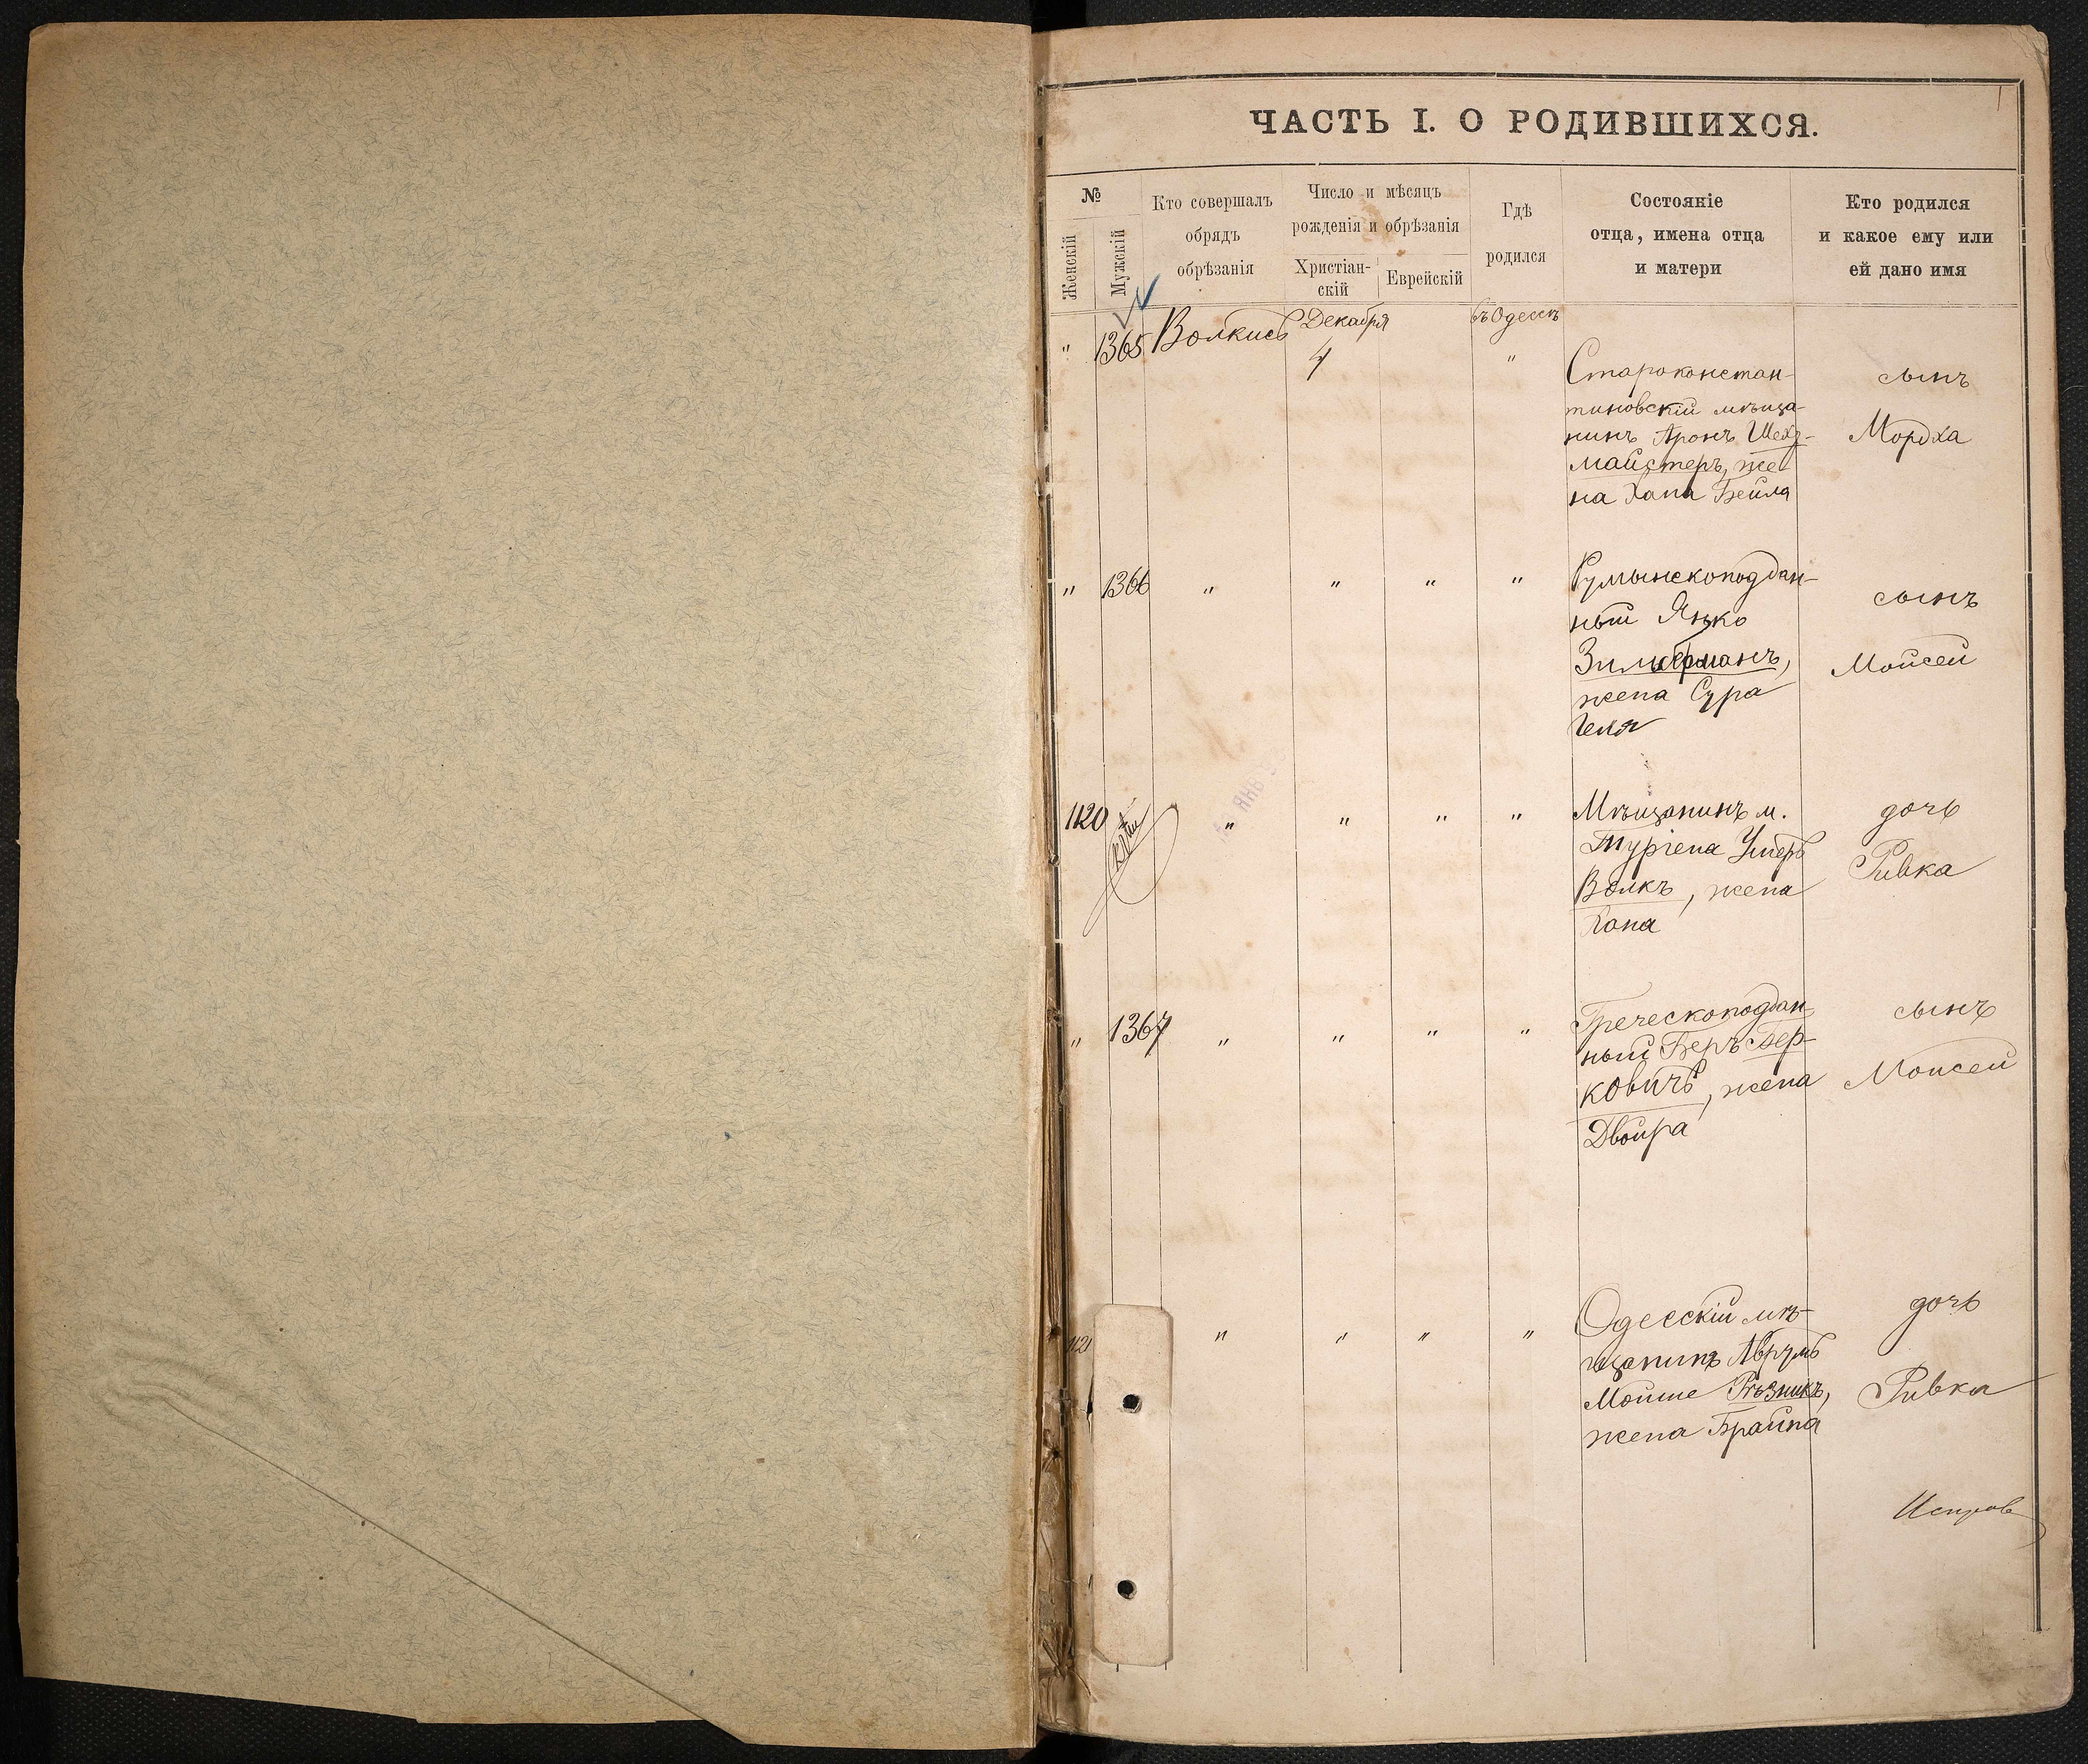 1
ЧАСТЬ I. О РОДИВШИХСЯ.
№
Женскій
Мужскій
Кто совершалъ
обрядъ
обрѣзанія
Число и мѣсяцъ
рожденія и обрѣзанія
Христіан-
скій
Еврейскій
Гдѣ
родился
Состояніе
отца, имена отца
и матери
Кто родился
и какое ему или
ей дано имя
" 1365 Волкисъ Декабря въ Одессѣ
4 "
Староконстан-
тиновскій мѣща-
нинъ Аронъ Шехт-
майстеръ, же-
на Хана Бейла
сынъ
Мордха
" 1366 " " " "
Румынскоподдан-
ный Янко
Зильберманъ,
жена Сура
сынъ
Мойсей
1120 " " " "
ЯНВ
Мѣщанинъ м.
Волкъ, жена
Хана
дочь
Ривка
" 1367 " " " "
Греческоподдан-
ный Беръ Бер-
ковичъ, жена
Двойра
сынъ
Моисей
1121 " " " "
Одесскій мѣ-
щанинъ Аврумъ
Мойше Рѣзникъ,
жена Брайна
дочь
Ривка
Исправ